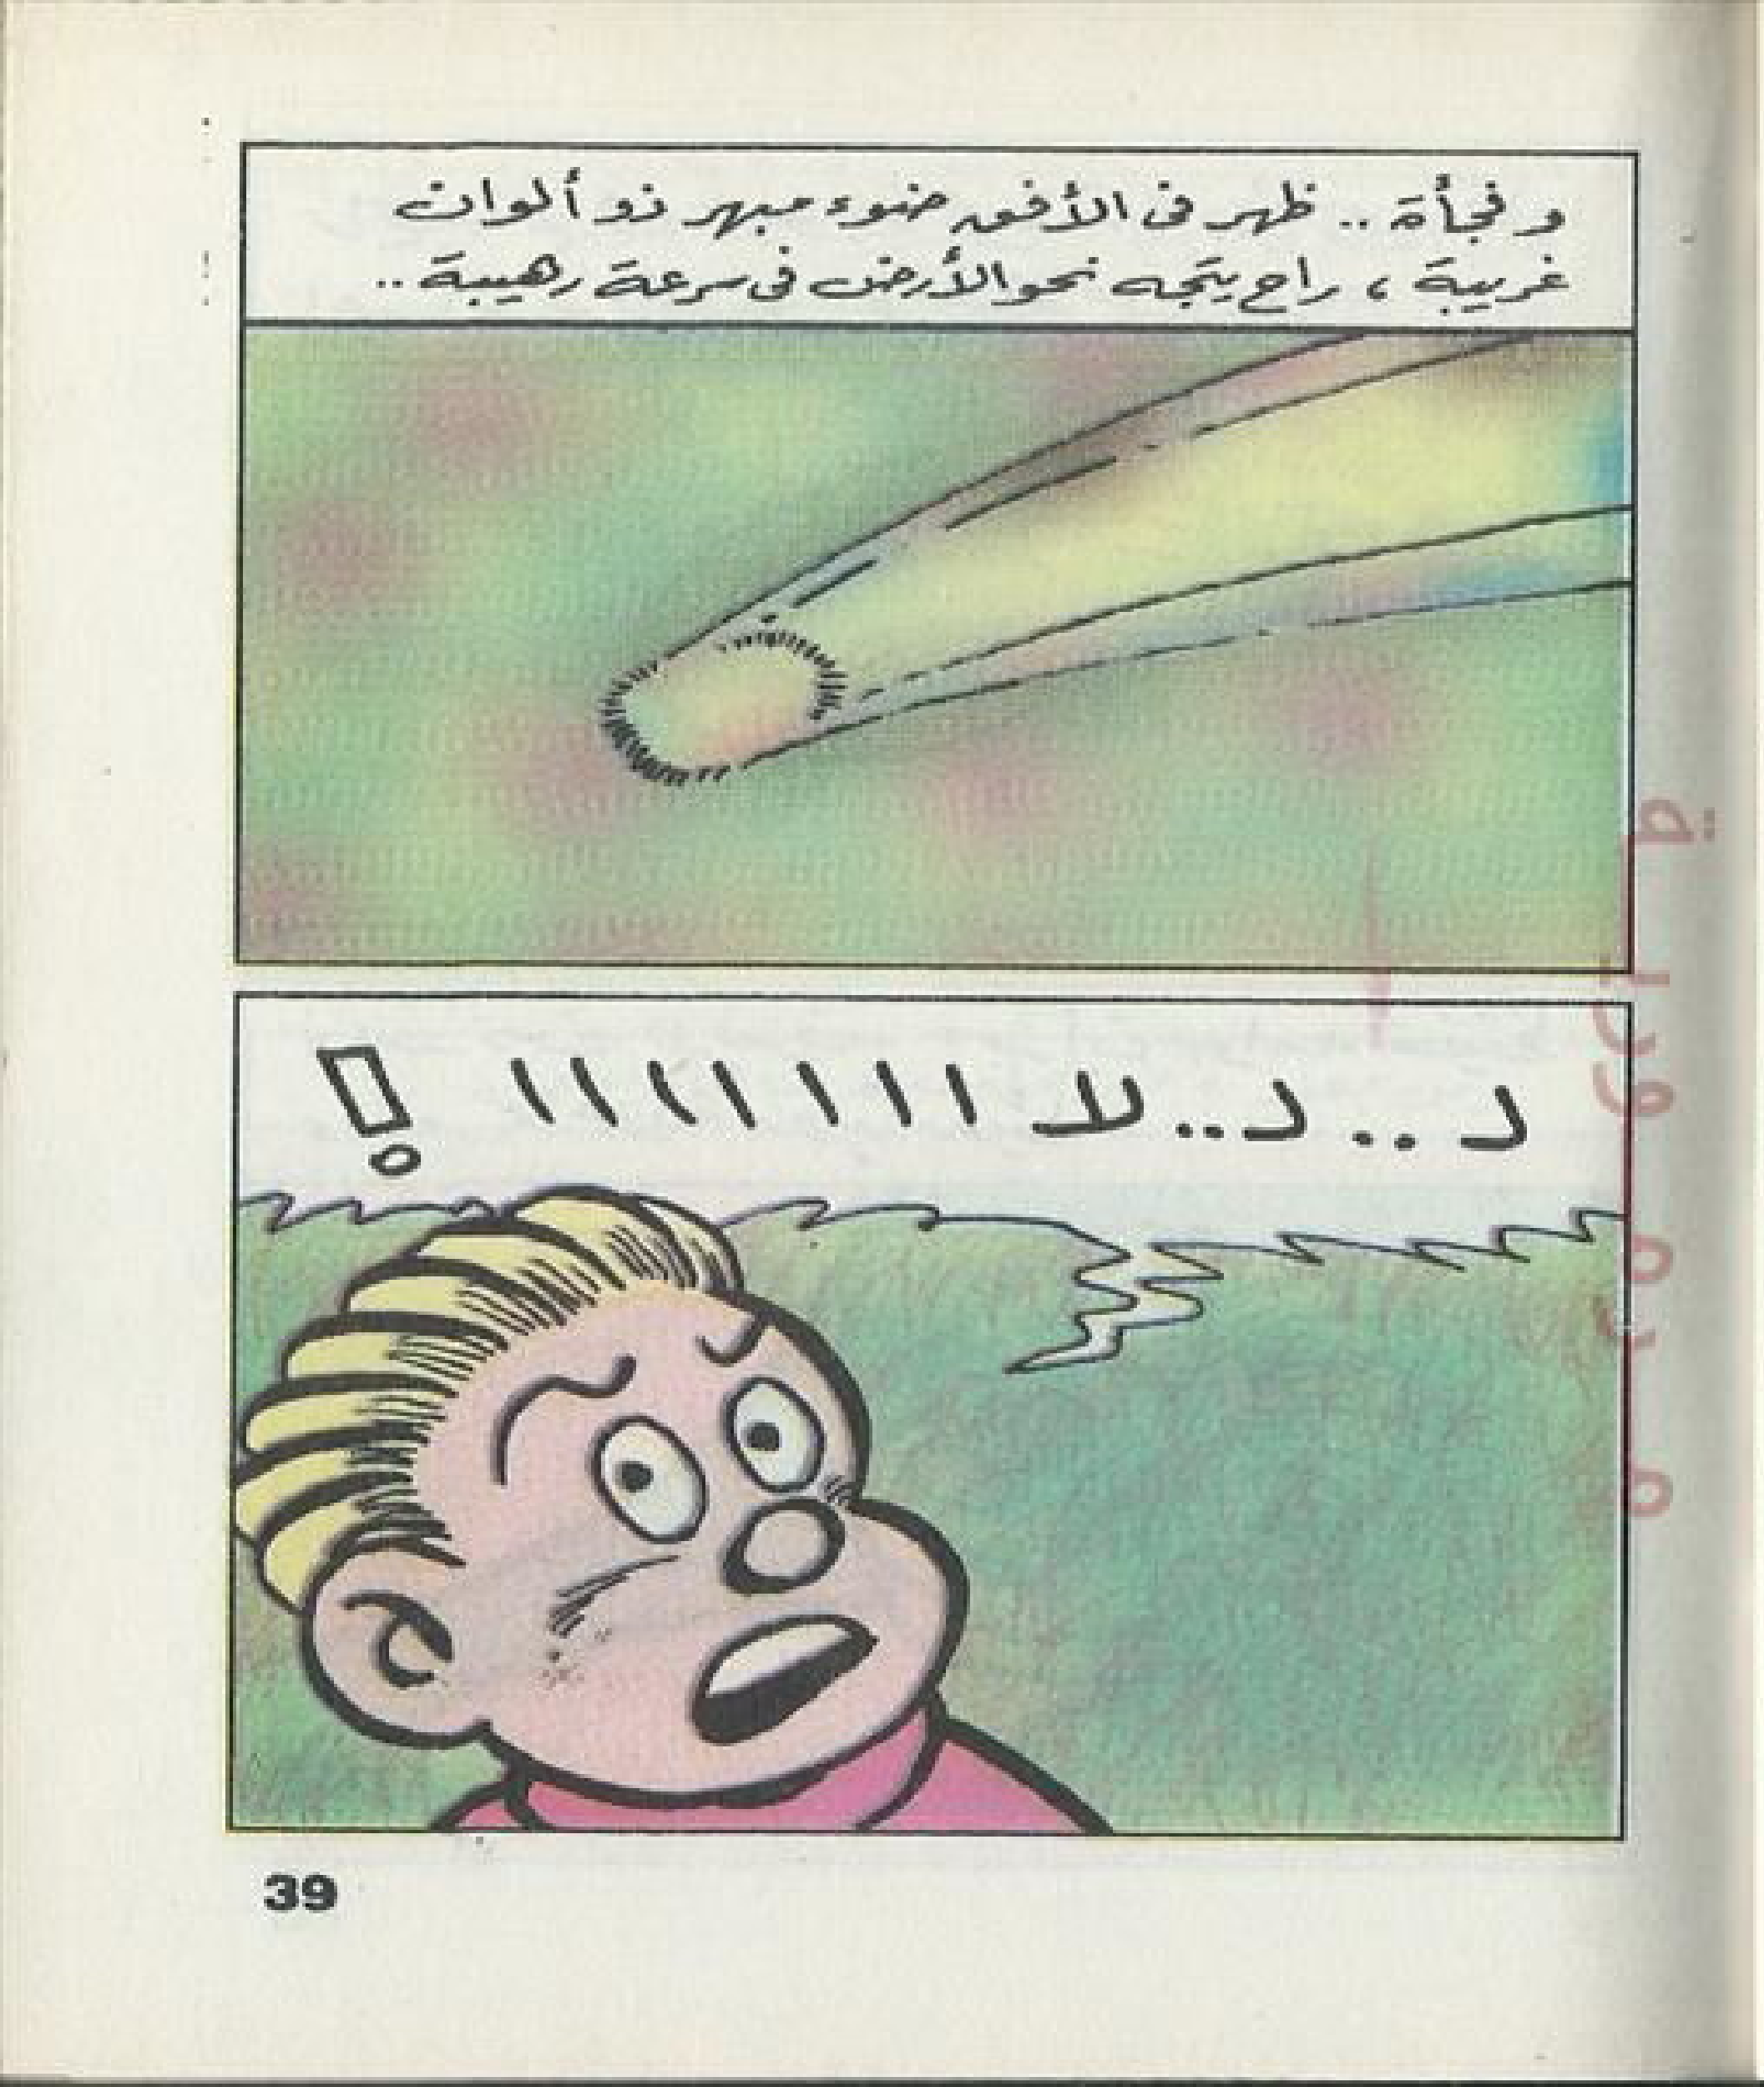 وفجأة .. ظهر فى الأفق ضوء مبهر ذو ألوان
غريبة ، راح يتجه نحو الأرض فى سرعة رهيبة ..
لـ .. لـ .. لا ا ا ا ا ا ا ا !
39